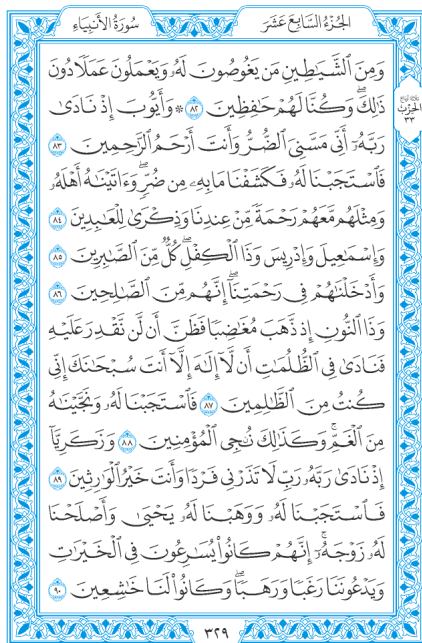 الجُزْءُ السَّابِعَ عَشَرَ
سُورَةُ الأَنبِيَاءِ
وَمِنَ ٱلشَّيَـٰطِينِ مَن يَغُوصُونَ لَهُۥ وَيَعْمَلُونَ عَمَلًا دُونَ
ذَٰلِكَ ۖ وَكُنَّا لَهُمْ حَـٰفِظِينَ ٨٢ ۞ وَأَيُّوبَ إِذْ نَادَىٰ
رَبَّهُۥٓ أَنِّى مَسَّنِىَ ٱلضُّرُّ وَأَنتَ أَرْحَمُ ٱلرَّٰحِمِينَ ٨٣
فَٱسْتَجَبْنَا لَهُۥ فَكَشَفْنَا مَا بِهِۦ مِن ضُرٍّ ۖ وَءَاتَيْنَـٰهُ أَهْلَهُۥ
وَمِثْلَهُم مَّعَهُمْ رَحْمَةً مِّنْ عِندِنَا وَذِكْرَىٰ لِلْعَـٰبِدِينَ ٨٤
وَإِسْمَـٰعِيلَ وَإِدْرِيسَ وَذَا ٱلْكِفْلِ ۖ كُلٌّ مِّنَ ٱلصَّـٰبِرِينَ ٨٥
وَأَدْخَلْنَـٰهُمْ فِى رَحْمَتِنَآ ۖ إِنَّهُم مِّنَ ٱلصَّـٰلِحِينَ ٨٦
وَذَا ٱلنُّونِ إِذ ذَّهَبَ مُغَـٰضِبًا فَظَنَّ أَن لَّن نَّقْدِرَ عَلَيْهِ
فَنَادَىٰ فِى ٱلظُّلُمَـٰتِ أَن لَّآ إِلَـٰهَ إِلَّآ أَنتَ سُبْحَـٰنَكَ إِنِّى
كُنتُ مِنَ ٱلظَّـٰلِمِينَ ٨٧ فَٱسْتَجَبْنَا لَهُۥ وَنَجَّيْنَـٰهُ
مِنَ ٱلْغَمِّ ۚ وَكَذَٰلِكَ نُـۨجِى ٱلْمُؤْمِنِينَ ٨٨ وَزَكَرِيَّآ
إِذْ نَادَىٰ رَبَّهُۥ رَبِّ لَا تَذَرْنِى فَرْدًا وَأَنتَ خَيْرُ ٱلْوَٰرِثِينَ ٨٩
فَٱسْتَجَبْنَا لَهُۥ وَوَهَبْنَا لَهُۥ يَحْيَىٰ وَأَصْلَحْنَا
لَهُۥ زَوْجَهُۥٓ ۚ إِنَّهُمْ كَانُوا۟ يُسَـٰرِعُونَ فِى ٱلْخَيْرَٰتِ
وَيَدْعُونَنَا رَغَبًا وَرَهَبًا ۖ وَكَانُوا۟ لَنَا خَـٰشِعِينَ ٩٠
الحِزْبِ
٣٣
٣٢٩